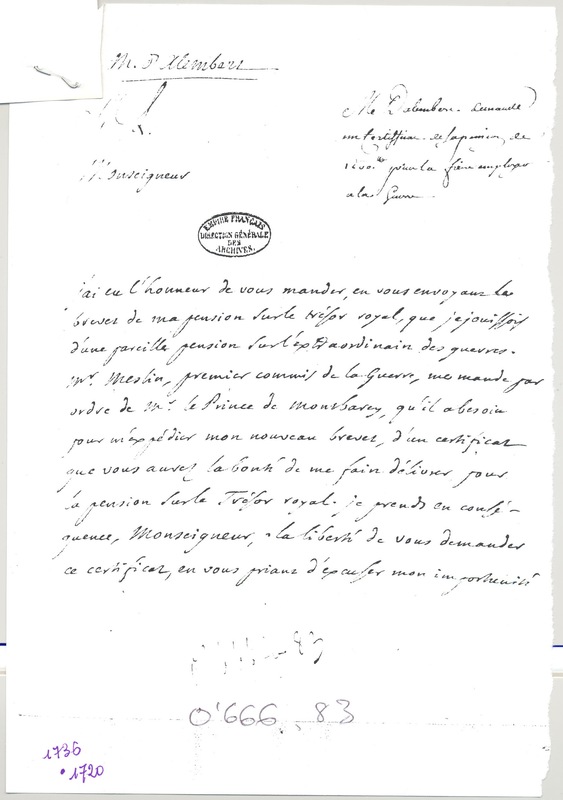 M. D'Alembert
Mr Dalembert demande
un Certificat de sa pension de
1200.tt pour la faire employer
a la Guerre
Monseigneur
EMPIRE FRANÇAIS
DIRECTION GÉNÉRALE
DES
ARCHIVES.
j'ai eu l'honneur de vous mander, en vous envoyant le
brevet de ma pension sur le trésor royal, que je jouissois
d'une pareille pension sur l'extraordinaire des guerres.
Mr. Meslin, premier commis de la Guerre, me mande par
ordre de Mr. le Prince de Montbarey, qu'il a besoin
pour m'expédier mon nouveau brevet, d'un certificat
que vous aurez la bonté de me faire délivrer pour
la pension sur le Trésor royal. je prends en consé-
quence, Monseigneur, la liberté de vous demander
ce certificat, en vous priant d'excuser mon importunité
0'666 83
1736
1720